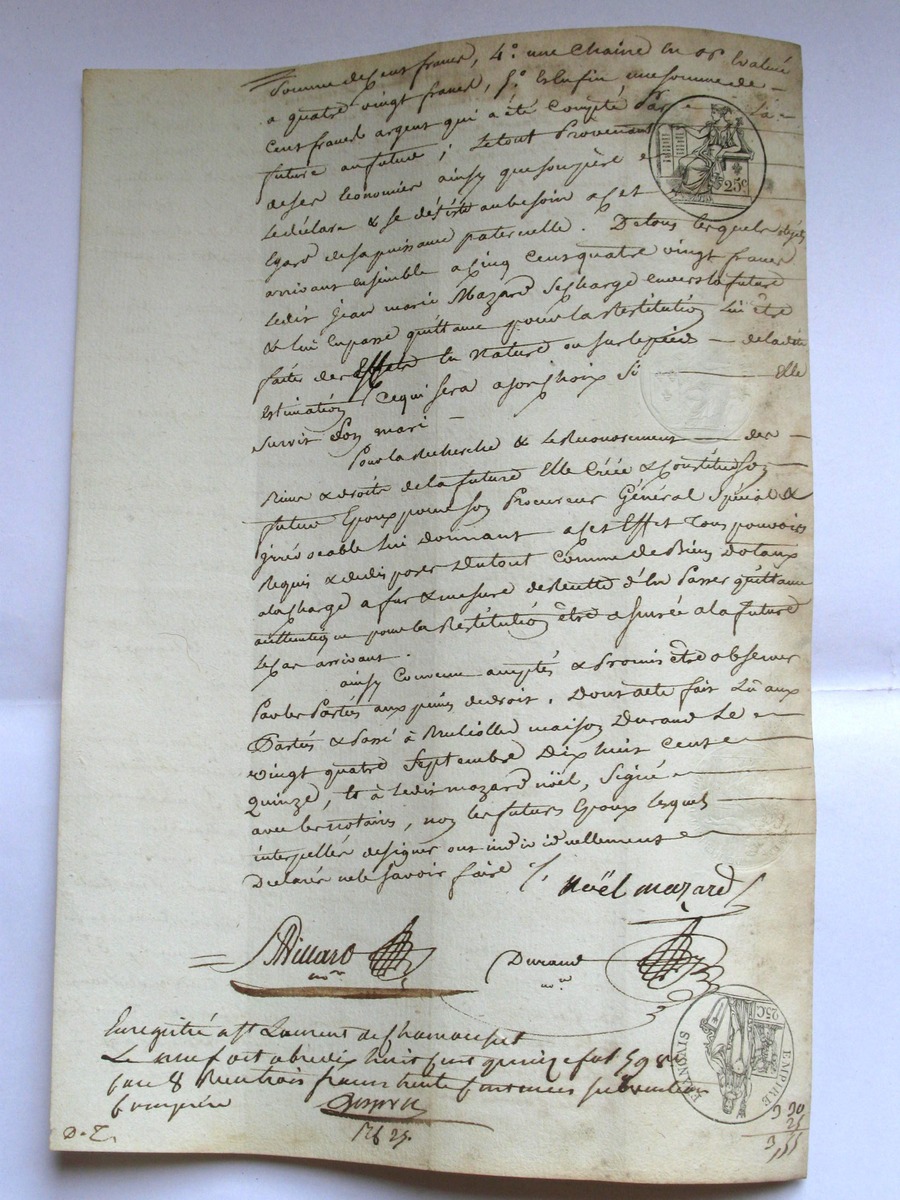 Somme de Cent francs, 4.° une Chaine en or Evalué
a quatre vingt francs, 5.° Et Enfin une somme de
Cent francs argent qui a été Compté par la
future au future ; Le tout Provenant
de ses Economies ainsy que son père
Le déclare & se désiste au besoin a Cet
Egard de sa puissance paternelle. De tous lesquels objets
arrivant ensemble a Cinq Cens quatre vingt francs
Ledit Jean marie Mazard se charge envers la future
& lui En passe quittance pour la Restitution Lui être
faites des Effets En Nature ou sur le pied de la dite
Estimation Ce qui sera a son choix Si Elle
survit son mari
Pour la Recherche & Le Recouvrement des
Biens & droits de la future Elle Créée & Constitue son
futur Epoux pour son Procureur Général Spécial &
jrrévocable lui Donnant a Cet Effet Tous pouvoirs
Requis & de disposer Du tout Comme de Biens Dotaux
a la Charge a fur & mesure de Recette d'En Passer quittance
authentique pour la Restitution être assurée a la future
Le Cas arrivant.
ainsy Convenu accepté & Promis être observer
Par les Parties aux peines de droit. Dont acte fait Lû aux
Parties & Passé à maison Durand Le
vingt quatre Septembre Dix huit Cent
Quinze, Et à Ledit mazard noël, Signé
avec les notaires, non les futurs Epoux lesquels
interpellés de signer ont individuellement
Déclarés ne le Savoir faire /.
noël mazard
Durand
nore
nore
Enregistré a St Laurent de Chamousset
Le neuf octobre dix huit cent quinze fol 59
Case 8 Reçu trois francs trente Centimes subvention
Comprise
25c
25C
EMPIRE FRANCAIS